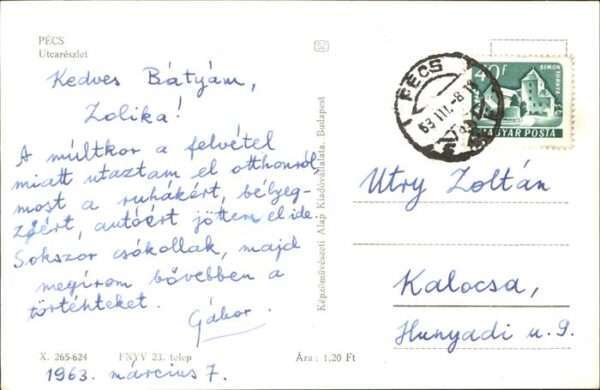 PÉCS
Utcarészlet
Kedves Bátyám,
Zolika!
A múltkor a felvétel
miatt utaztam el otthonról,
most a ruhákért, bélyeg-
zőért, autóért jöttem el ide.
Sokszor csókollak, majd
megírom bővebben a
történteket.
Gábor.
X. 265-624
FNYV 23. telep
Ára : 1,20 Ft
1963. március 7.
Képzőművészeti Alap Kiadóvállalata, Budapest
PÉCS
63 III.-8
40 f
SIMON
TORNYA
MAGYAR POSTA
Utry Zoltán
Kalocsa,
Hunyadi u. 9.